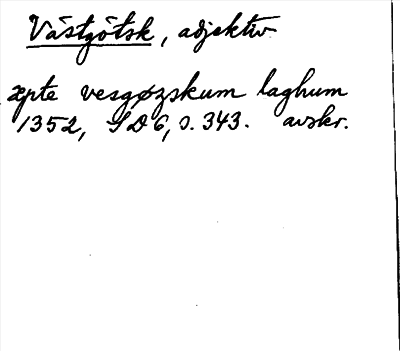 Västgötsk, adjektiv.
æpte vesgøzskum laghum
1352, SD 6, s. 343. avskr.